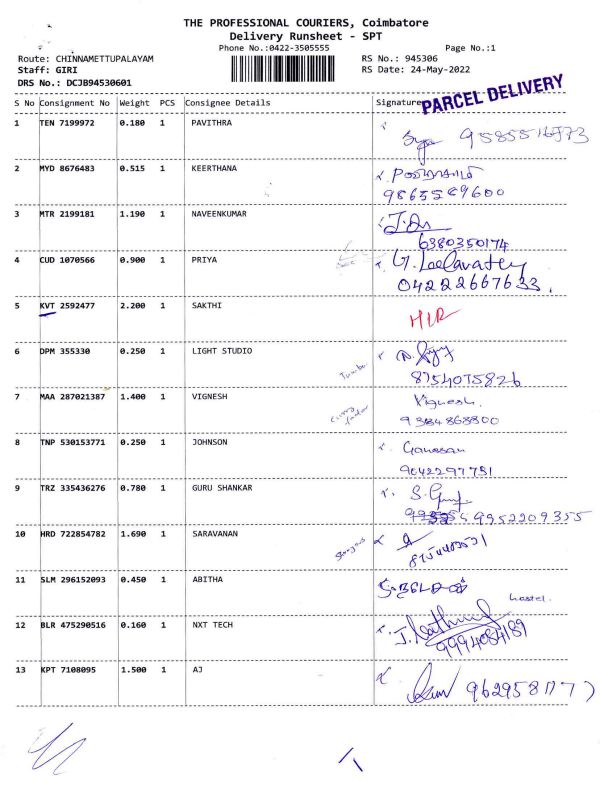 THE PROFESSIONAL COURIERS, Coimbatore
Delivery Runsheet - SPT
Phone No.:0422-3505555
Page No.:1
Route: CHINNAMETTUPALAYAM
RS No.: 945306
Staff: GIRI
RS Date: 24-May-2022
DRS No.: DCJB94530601
PARCEL DELIVERY
S No Consignment No Weight PCS Consignee Details Signature
1 TEN 7199972 0.180 1 PAVITHRA
2 MYD 8676483 0.515 1 KEERTHANA
9865589600
3 MTR 2199181 1.190 1 NAVEENKUMAR
6380350174
4 CUD 1070566 0.900 1 PRIYA G. Leelavathy
04222667633
5 KVT 2592477 2.200 1 SAKTHI
6 DPM 355330 0.250 1 LIGHT STUDIO
8754075826
7 MAA 287021387 1.400 1 VIGNESH Vignesh
9384868800
8 TNP 530153771 0.250 1 JOHNSON Ganesan
9042297751
9 TRZ 335436276 0.780 1 GURU SHANKAR
9952209355
10 HRD 722854782 1.690 1 SARAVANAN
11 SLM 296152093 0.450 1 ABITHA
hostel
12 BLR 475290516 0.160 1 NXT TECH
9994084189
13 KPT 7108095 1.500 1 AJ